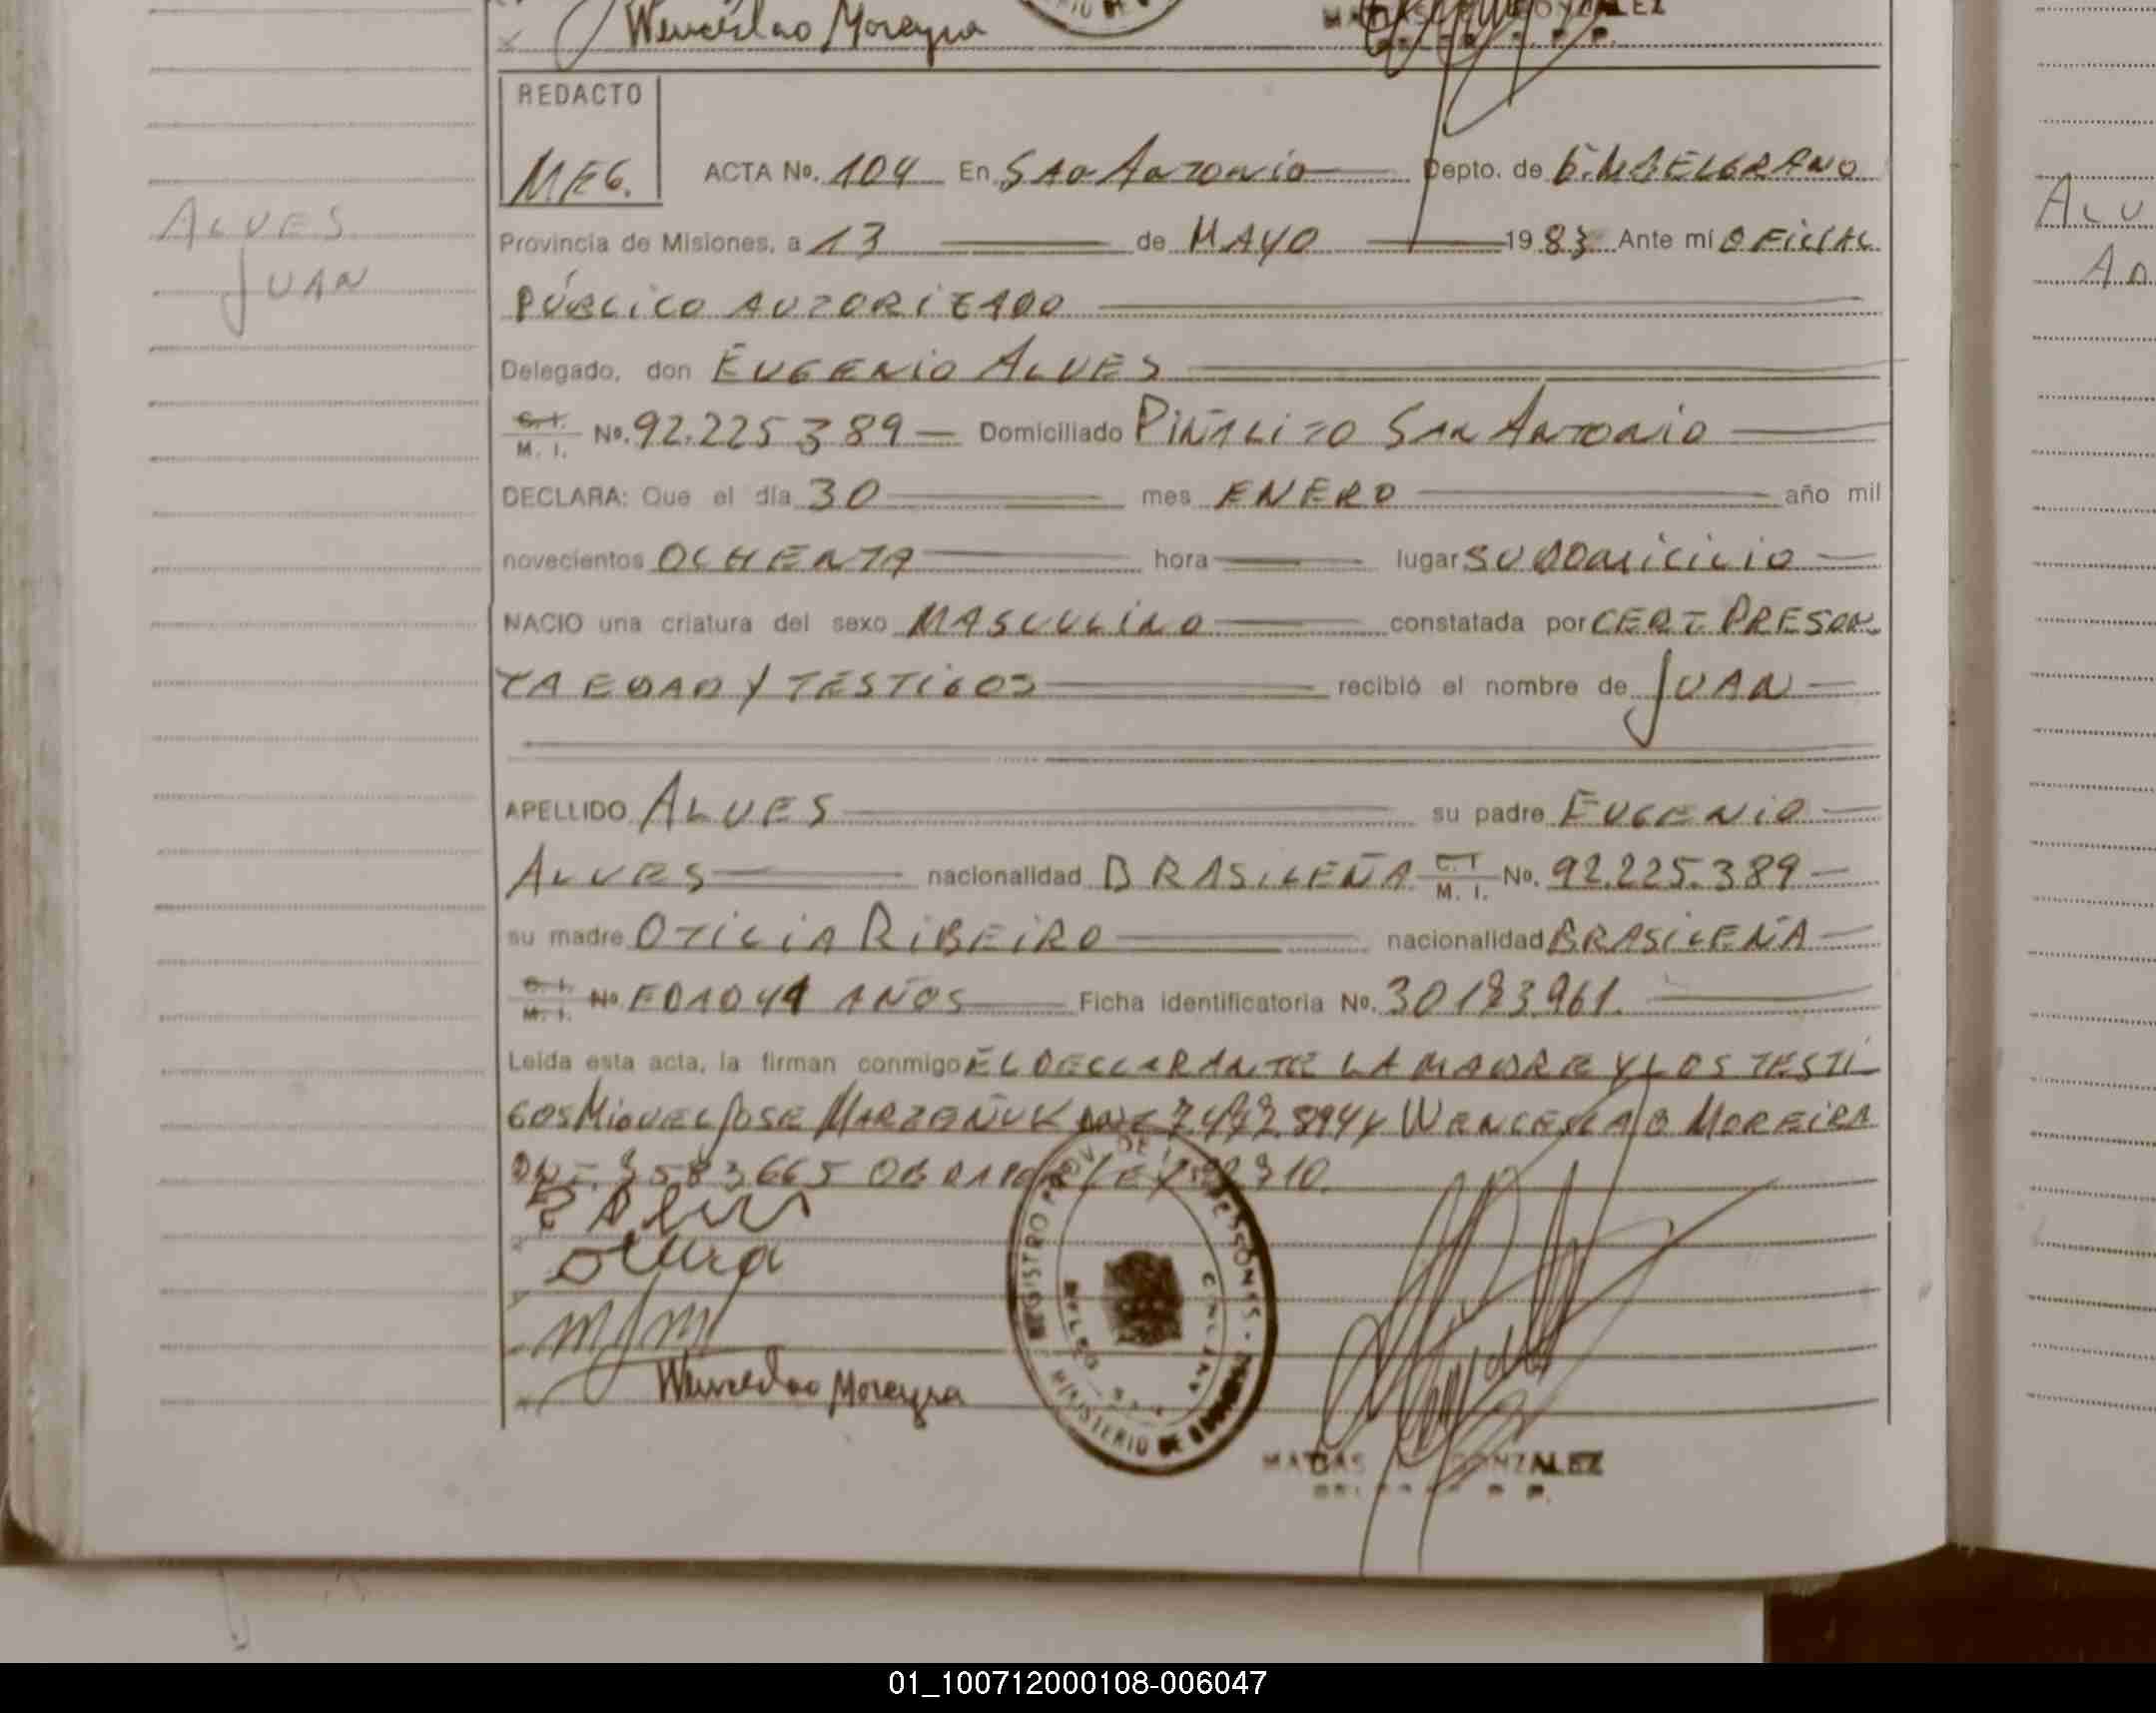 Wenceslao Moreyra
REDACTO
MEG.
ACTA No. 104 En San Antonio Depto. de G. M. BELGRANO
ALVES
JUAN
Provincia de Misiones, a 13 de MAYO 1983 Ante mi OFICIAL
PÚBLICO AUTORIZADO
Delegado, don EUGENIO ALVES
C. I. M. I. No. 92.225389 Domiciliado PIÑALITO SAN ANTONIO
DECLARA: Que el día 30 mes ENERO año mil
novecientos OCHENTA hora lugar SU DOMICILIO
NACIO una criatura del sexo MASCULINO constatada por CERT. PRESUN
TA EDAD Y TESTIGOS recibió el nombre de JUAN
APELLIDO ALVES su padre EUGENIO
ALVES nacionalidad BRASILEÑA C. I. M. I. No. 92.225.389
su madre OTILIA RIBEIRO nacionalidad BRASILEÑA
C. I. M. I. No EDAD 41 AÑOS Ficha identificatoria No. 30183961.
Leída esta acta, la firman conmigo EL DECLARANTE LA MADRE Y LOS TESTI
GOS MIGUEL JOSE MARZEÑUK DNI 7.472.894 y WENCESLAO MOREIRA
DNI. 3583665 LEY
E Alves
REGISTRO PROV. DE LAS PERSONAS
MINISTERIO DE
Wenceslao Moreyra
MATIAS GONZALEZ
ALV
01_100712000108-006047